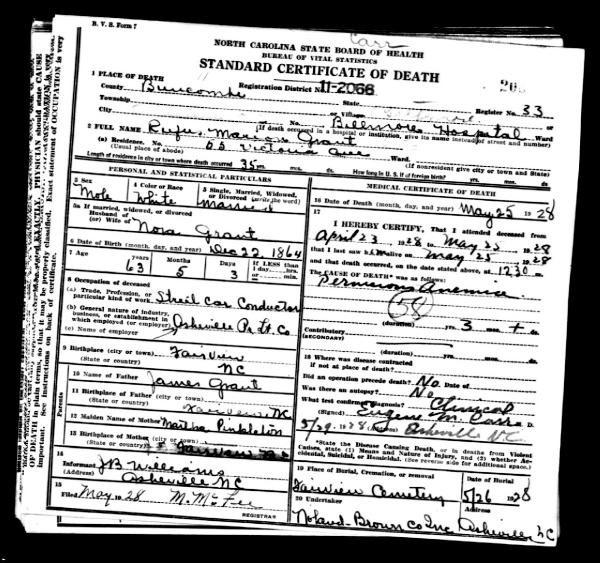 B. V. S. Form 7
Carr
NORTH CAROLINA STATE BOARD OF HEALTH
BUREAU OF VITAL STATISTICS
STANDARD CERTIFICATE OF DEATH
1 PLACE OF DEATH
County Buncombe Registration District No. 11-2066
State
Township
Village
Register No. 33
City No. Biltmore Hospital Ward
(If death occurred in a hospital or institution, give its name instead of street and number)
2 FULL NAME Rufus Marion Grant
(a) Residence. No. Victoria Ave Ward.
(Usual place of abode) (If nonresident give city or town and State)
Length of residence in city or town where death occurred 35 yrs. mos. ds. How long in U. S., if of foreign birth? yrs. mos. ds.
PERSONAL AND STATISTICAL PARTICULARS
3 Sex
Male
4 Color or Race
White
5 Single, Married, Widowed, or Divorced (write the word)
Married
5a If married, widowed, or divorced
Husband of
(or) Wife of Nora Grant
6 Date of Birth (month, day, and year) Dec 22, 1864
7 Age years months Days If LESS than 1 day,
63 5 3
8 Occupation of deceased
(a) Trade, Profession, or particular kind of work Street Car Conductor
(b) General nature of industry, business, or establishment in which employed (or employer) Asheville Pr. Lt. Co
(c) Name of employer
9 Birthplace (city or town) Fairview
(State or country) NC
Parents
10 Name of Father James Grant
11 Birthplace of Father (city or town) Fairview NC
(State or country)
12 Maiden Name of Mother Martha Pinkleton
13 Birthplace of Mother (city or town)
(State or country) Fairview NC
14
Informant JB Williams
Asheville NC
15
Filed May 1928 M. McFee
REGISTRAR
MEDICAL CERTIFICATE OF DEATH
16 Date of Death (month, day, and year) May 25 1928
17
I HEREBY CERTIFY, That I attended deceased from
April 23 1928 to May 25 1928
that I last saw alive on May 25 1928
and that death occurred, on the date stated above, at 12 30 m.
The CAUSE OF DEATH* was as follows:
Pernicious Anemia
58
(duration) yrs. 3 mos. + ds.
Contributory
(SECONDARY)
(duration) yrs. mos. ds.
18 Where was disease contracted
if not at place of death?
Did an operation precede death? No Date of
Was there an autopsy? No
What test confirmed diagnosis? Clinical
(Signed) Eugene M. Carr M. D.
5/29 1928 (Address) Asheville NC
*State the Disease Causing Death, or in deaths from Violent Causes, state (1) Means and Nature of Injury, and (2) whether Accidental, Suicidal, or Homicidal. (See reverse side for additional space.)
19 Place of Burial, Cremation, or removal Date of Burial
Fairview Cemetery 5/26 1928
20 Undertaker
Noland-Brown Co Inc Asheville NC